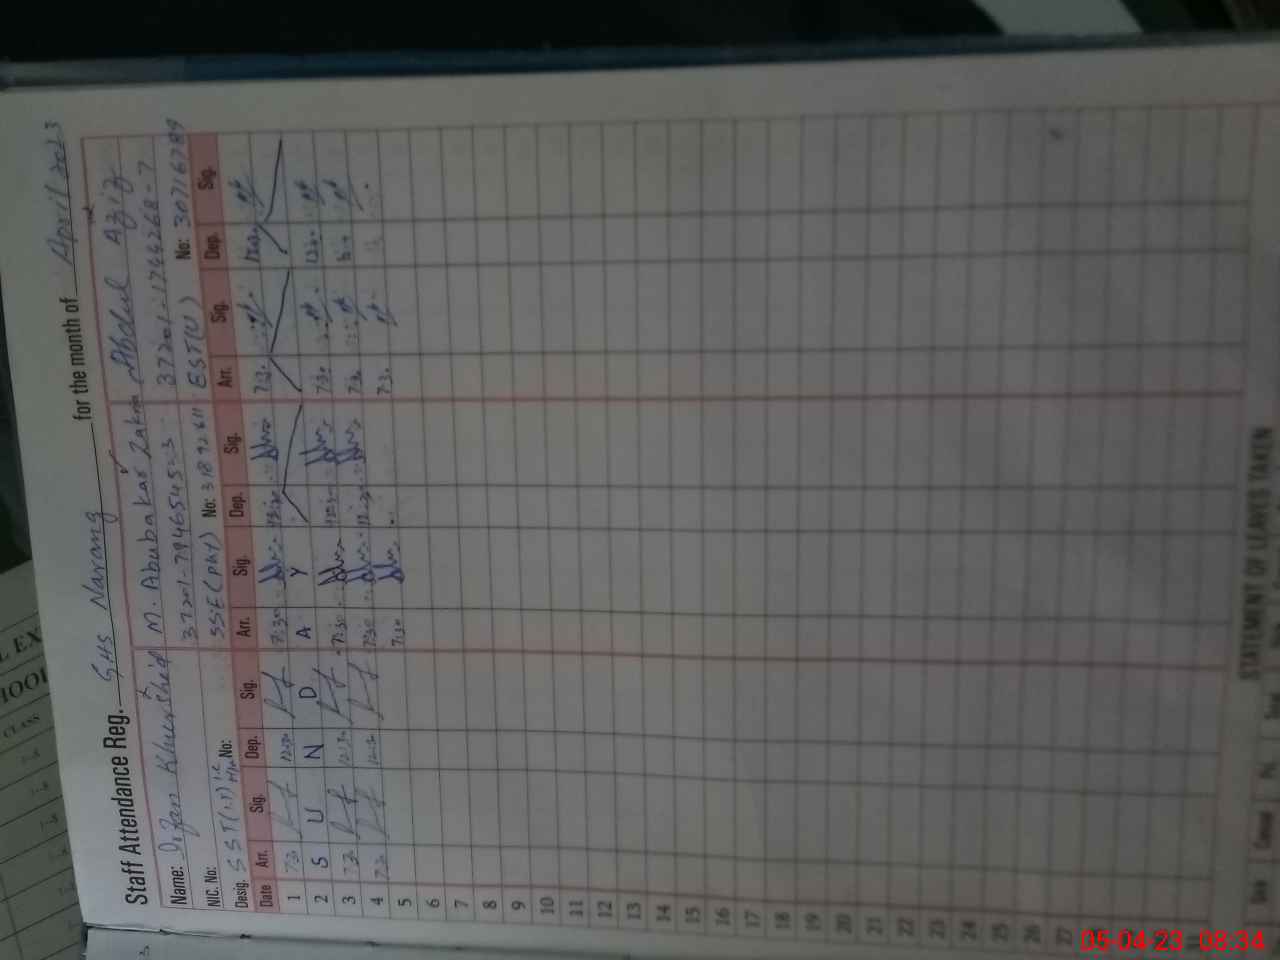 Staff Attendance Reg. GHS Narang for the month of April 2023
Name: Irfan Khurshid M. Abubakar Zakria Abdul Aziz
NIC. No: 37201-7946545-3 37201-1744268-7
Desig. SST(I.T) I/C H/M No: SSE(Phy) No: 31892611 EST(U) No: 30716789
Date Arr. Sig. Dep. Sig. Arr. Sig. Dep. Sig. Arr. Sig. Dep. Sig.
1 730 12:30 7:30 12:30 7:30 12:30
2 S U N D A Y
3 730 12:30 7:30 12:30 7:30 12:30
4 730 12:30 7:30 12:30 7:30
5 7:30 7:30
6
7
8
9
10
11
12
13
14
15
16
17
18
19
20
21
22
23
24
25
26
27
STATEMENT OF LEAVES TAKEN
Date Casual
L EX
HOOL
CLASS
05-04-23 08:34